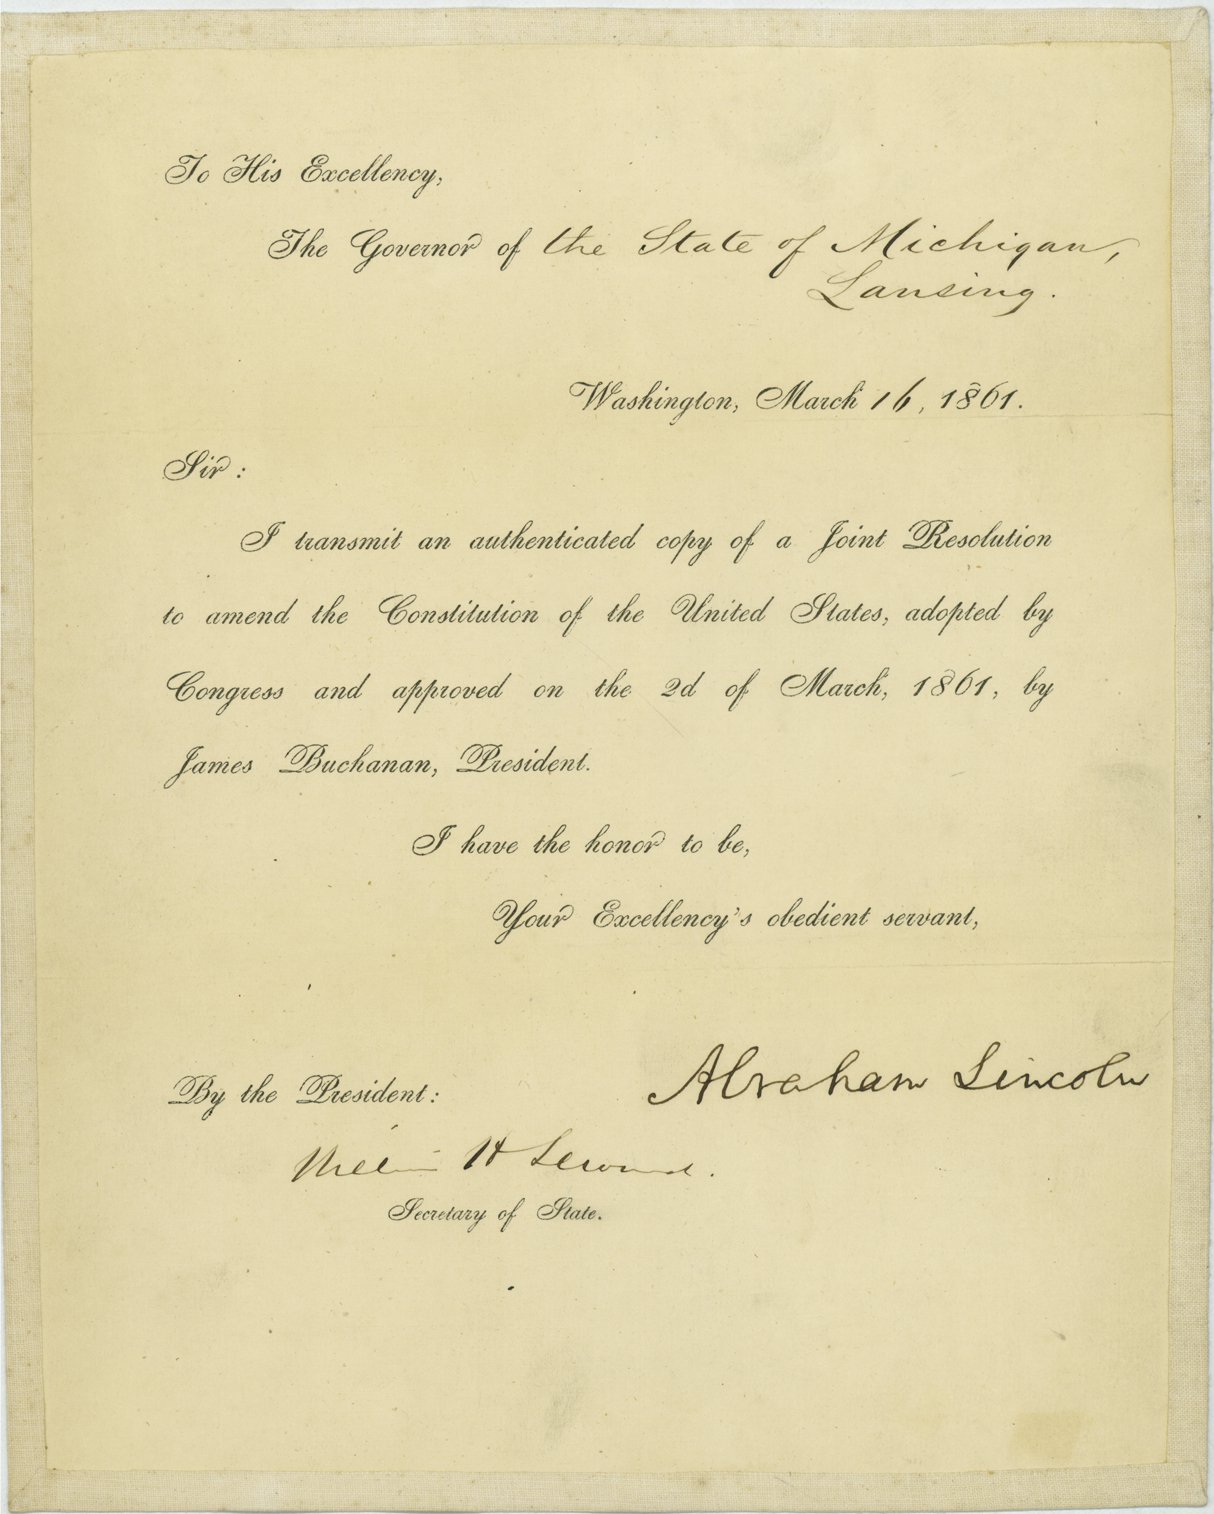 To His Excellency,
The Governor of the State of Michigan,
Lansing.
Washington, March 16, 1861.
Sir:
I transmit an authenticated copy of a Joint Resolution
to amend the Constitution of the United States, adopted by
Congress and approved on the 2d of March, 1861, by
James Buchanan, President.
I have the honor to be,
Your Excellency's obedient servant,
Abraham Lincoln
By the President:
William H Seward.
Secretary of State.